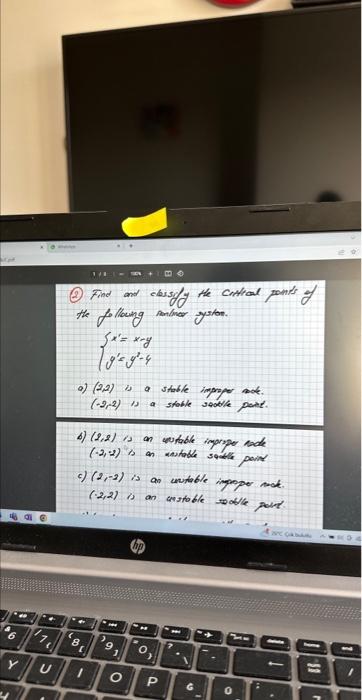 WhatsApp
1 / 8 - 100% +
② Find and classify the critical points of
the following nonlinear system.
x' = x-y
y' = y²-4
a) (2,2) is a stable improper node.
(-2,-2) is a stable saddle point.
b) (2,2) is an unstable improper node
(-2,-2) is an unstable saddle point
c) (2,-2) is an unstable improper node.
(-2,2) is an unstable saddle point.
Çok bulutlu
hp
delete home end
6 7 { 8 [ 9 ] 0 }
num lock
Y U I O P Ğ Ü